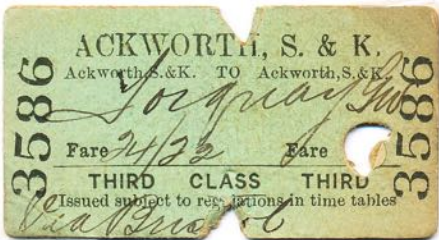 ACKWORTH, S. & K.
Ackworth,S.&K. TO Ackworth,S.&K.
Torquay GW
Fare 24/22 Fare
THIRD CLASS THIRD
Issued subject to regulations in time tables
Via Bristol
3586
3586